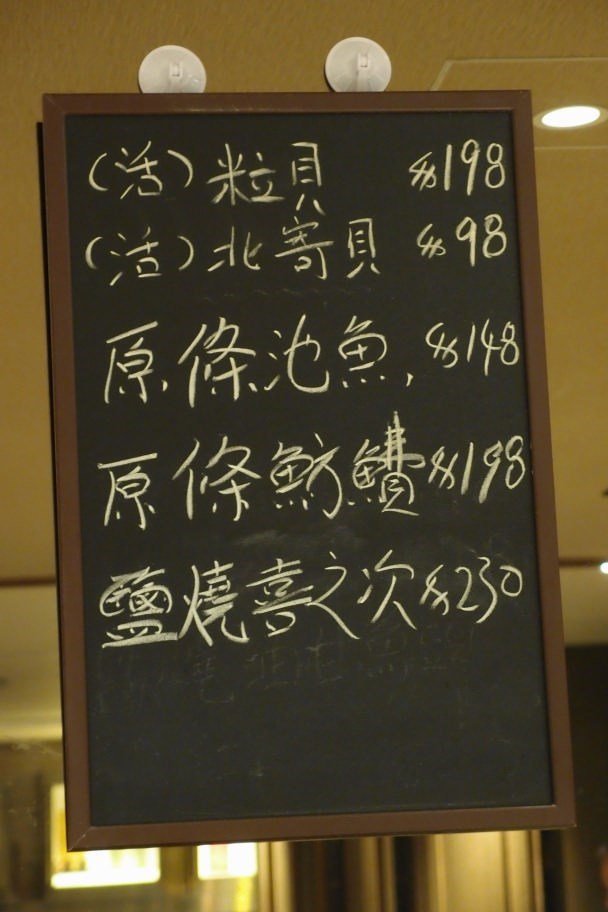 (活)粒貝 $198
(活)北寄貝 $98
原條池魚, $148
原條魴鱝 $198
鹽燒喜之次 $230